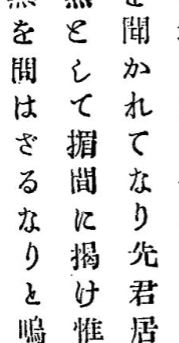 聞かれてなり先君居
として楣間に揭け惟
を間はざるなりと嗚